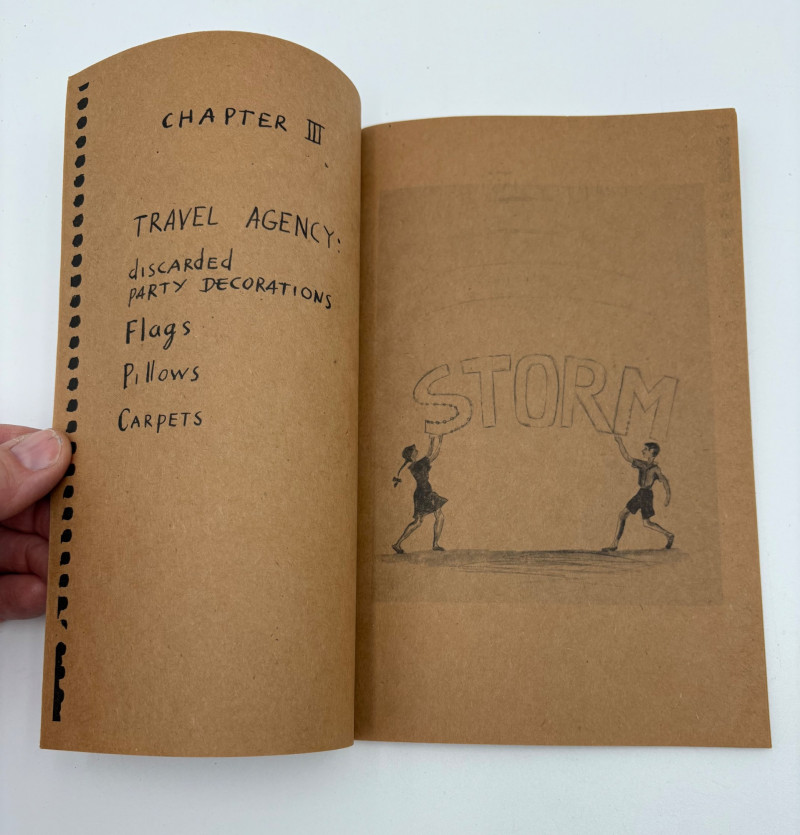 CHAPTER III
TRAVEL AGENCY:
discarded
PARTY DECORATIONS
Flags
Pillows
CARPETS
STORM